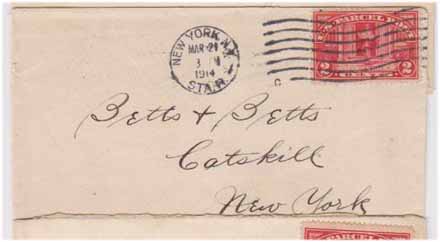 NEW YORK, N.Y.
MAR 21
3 M
1914
STA. R.
U.S. PARCEL POST
2 2
CENTS
C
Betts & Betts
Catskill
New York